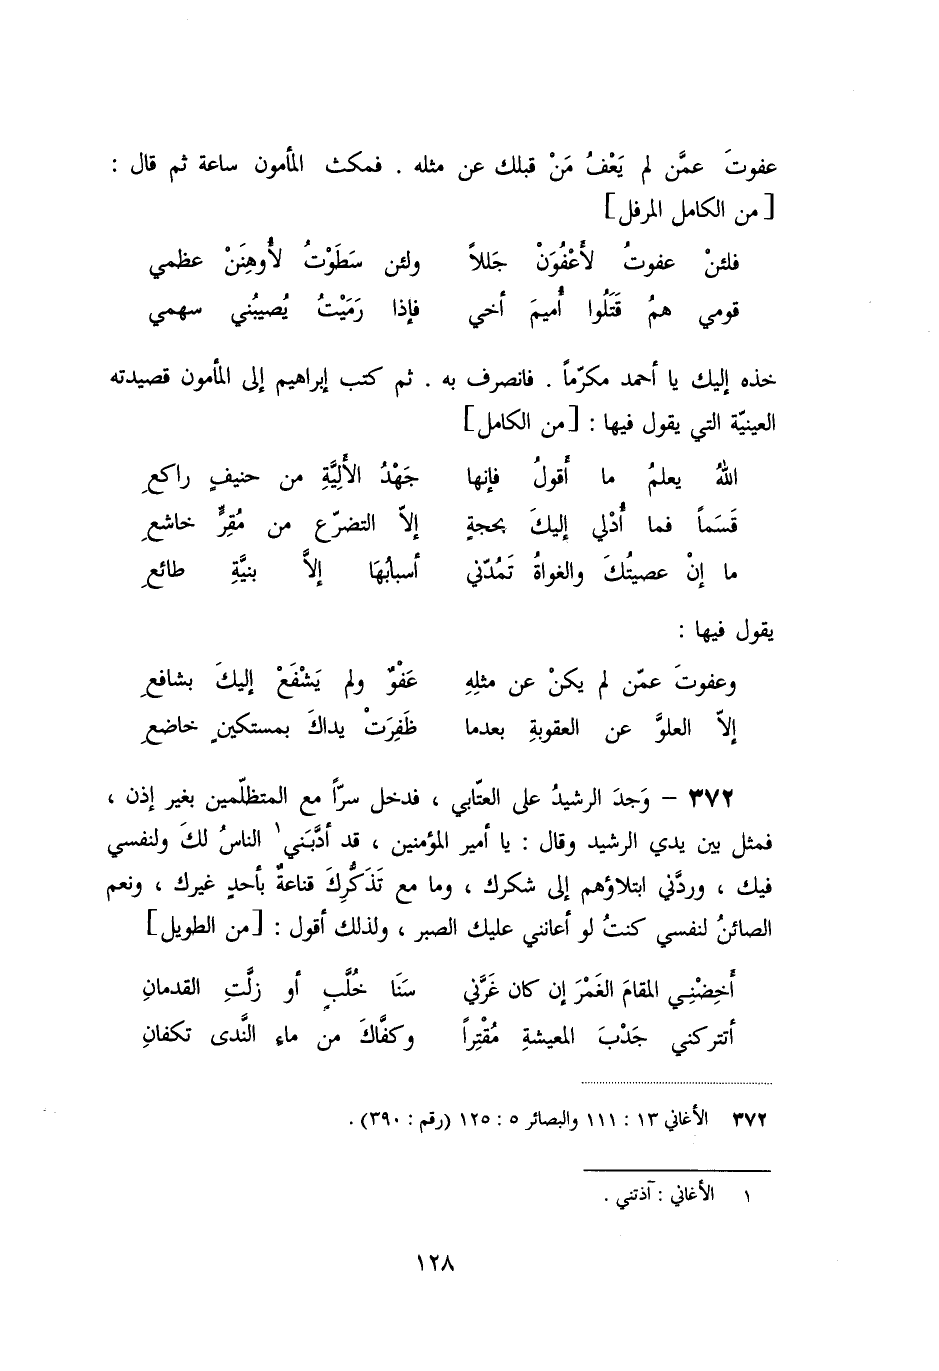 عفوتَ عمَّن لم يَعْفُ مَنْ قبلك عن مثله . فمكث المأمون ساعة ثم قال :
[من الكامل المرفل]
فلئنْ عفوتُ لأَعْفُوَنْ جَللاً ولئن سَطَوْتُ لأُوهِنَنْ عظمي
قومي همُ قَتَلُوا أُميمَ أخي فإذا رَمَيْتُ يُصيبُني سهمي
خذه إليك يا أحمد مكرّماً . فانصرف به . ثم كتب إبراهيم إلى المأمون قصيدته
العينيّة التي يقول فيها : [من الكامل]
اللهُ يعلمُ ما أَقولُ فإنها جَهْدُ الأَلِيَّةِ من حنيفٍ راكعِ
قَسَماً فما أُدْلي إليكَ بحجةٍ إلاّ التضرّع من مُقِرٍّ خاشعِ
ما إنْ عصيتُكَ والغواةُ تَمُدّني أسبابُهَا إلاَّ بنيَّةِ طائعِ
يقول فيها :
وعفوتَ عمّن لم يكنْ عن مثلِهِ عَفْوٌ ولم يَشْفَعْ إليكَ بشافعِ
إلاّ العلوَّ عن العقوبةِ بعدما ظَفِرَتْ يداكَ بمستكينٍ خاضعِ
٣٧٢ – وَجدَ الرشيدُ على العتّابي ، فدخل سرّاً مع المتظلّمين بغير إذن ،
فمثل بين يدي الرشيد وقال : يا أمير المؤمنين ، قد أدَّبَني١ الناسُ لكَ ولنفسي
فيك ، وردَّني ابتلاؤهم إلى شكرك ، وما مع تَذَكُّرِكَ قناعةٌ بأحدٍ غيرك ، ونعم
الصائنُ لنفسي كنتُ لو أعانني عليك الصبر ، ولذلك أقول : [من الطويل]
أَخِضْنِي المقامَ الغَمْرَ إن كان غَرَّني سَنَا خُلَّبٍ أو زلَّتِ القدمانِ
أتتركني جَدْبَ المعيشةِ مُقْتِراً وكفَّاكَ من ماءِ النَّدى تكفانِ
٣٧٢ الأغاني ١٣ : ١١١ والبصائر ٥ : ١٢٥ (رقم : ٣٩٠) .
١ الأغاني : آذتني .
١٢٨